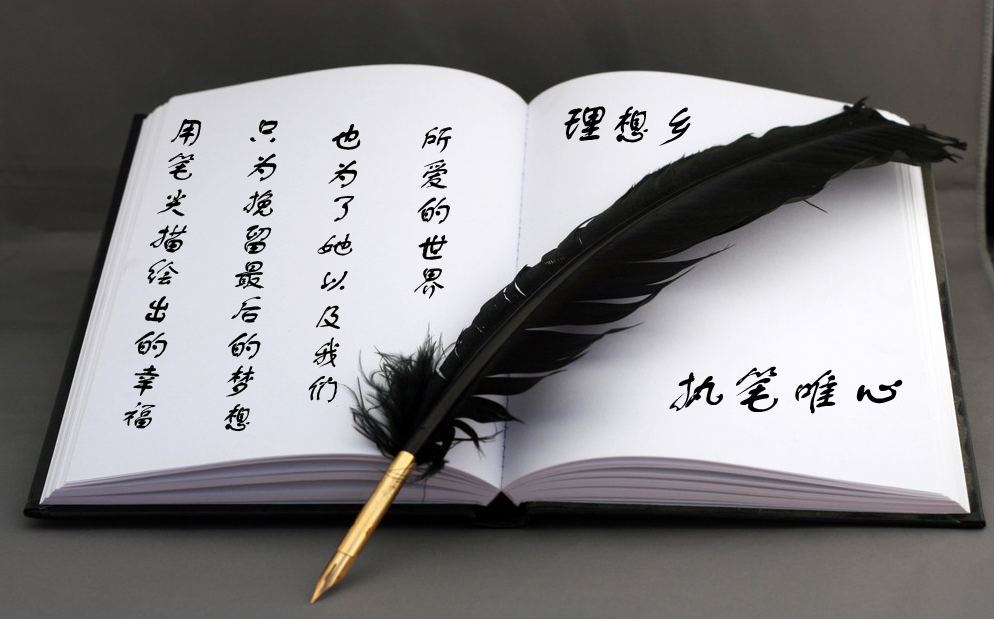 用笔尖描绘出的幸福
只为挽留最后的梦想
也为了她以及我们
所爱的世界
理想乡
执笔唯心